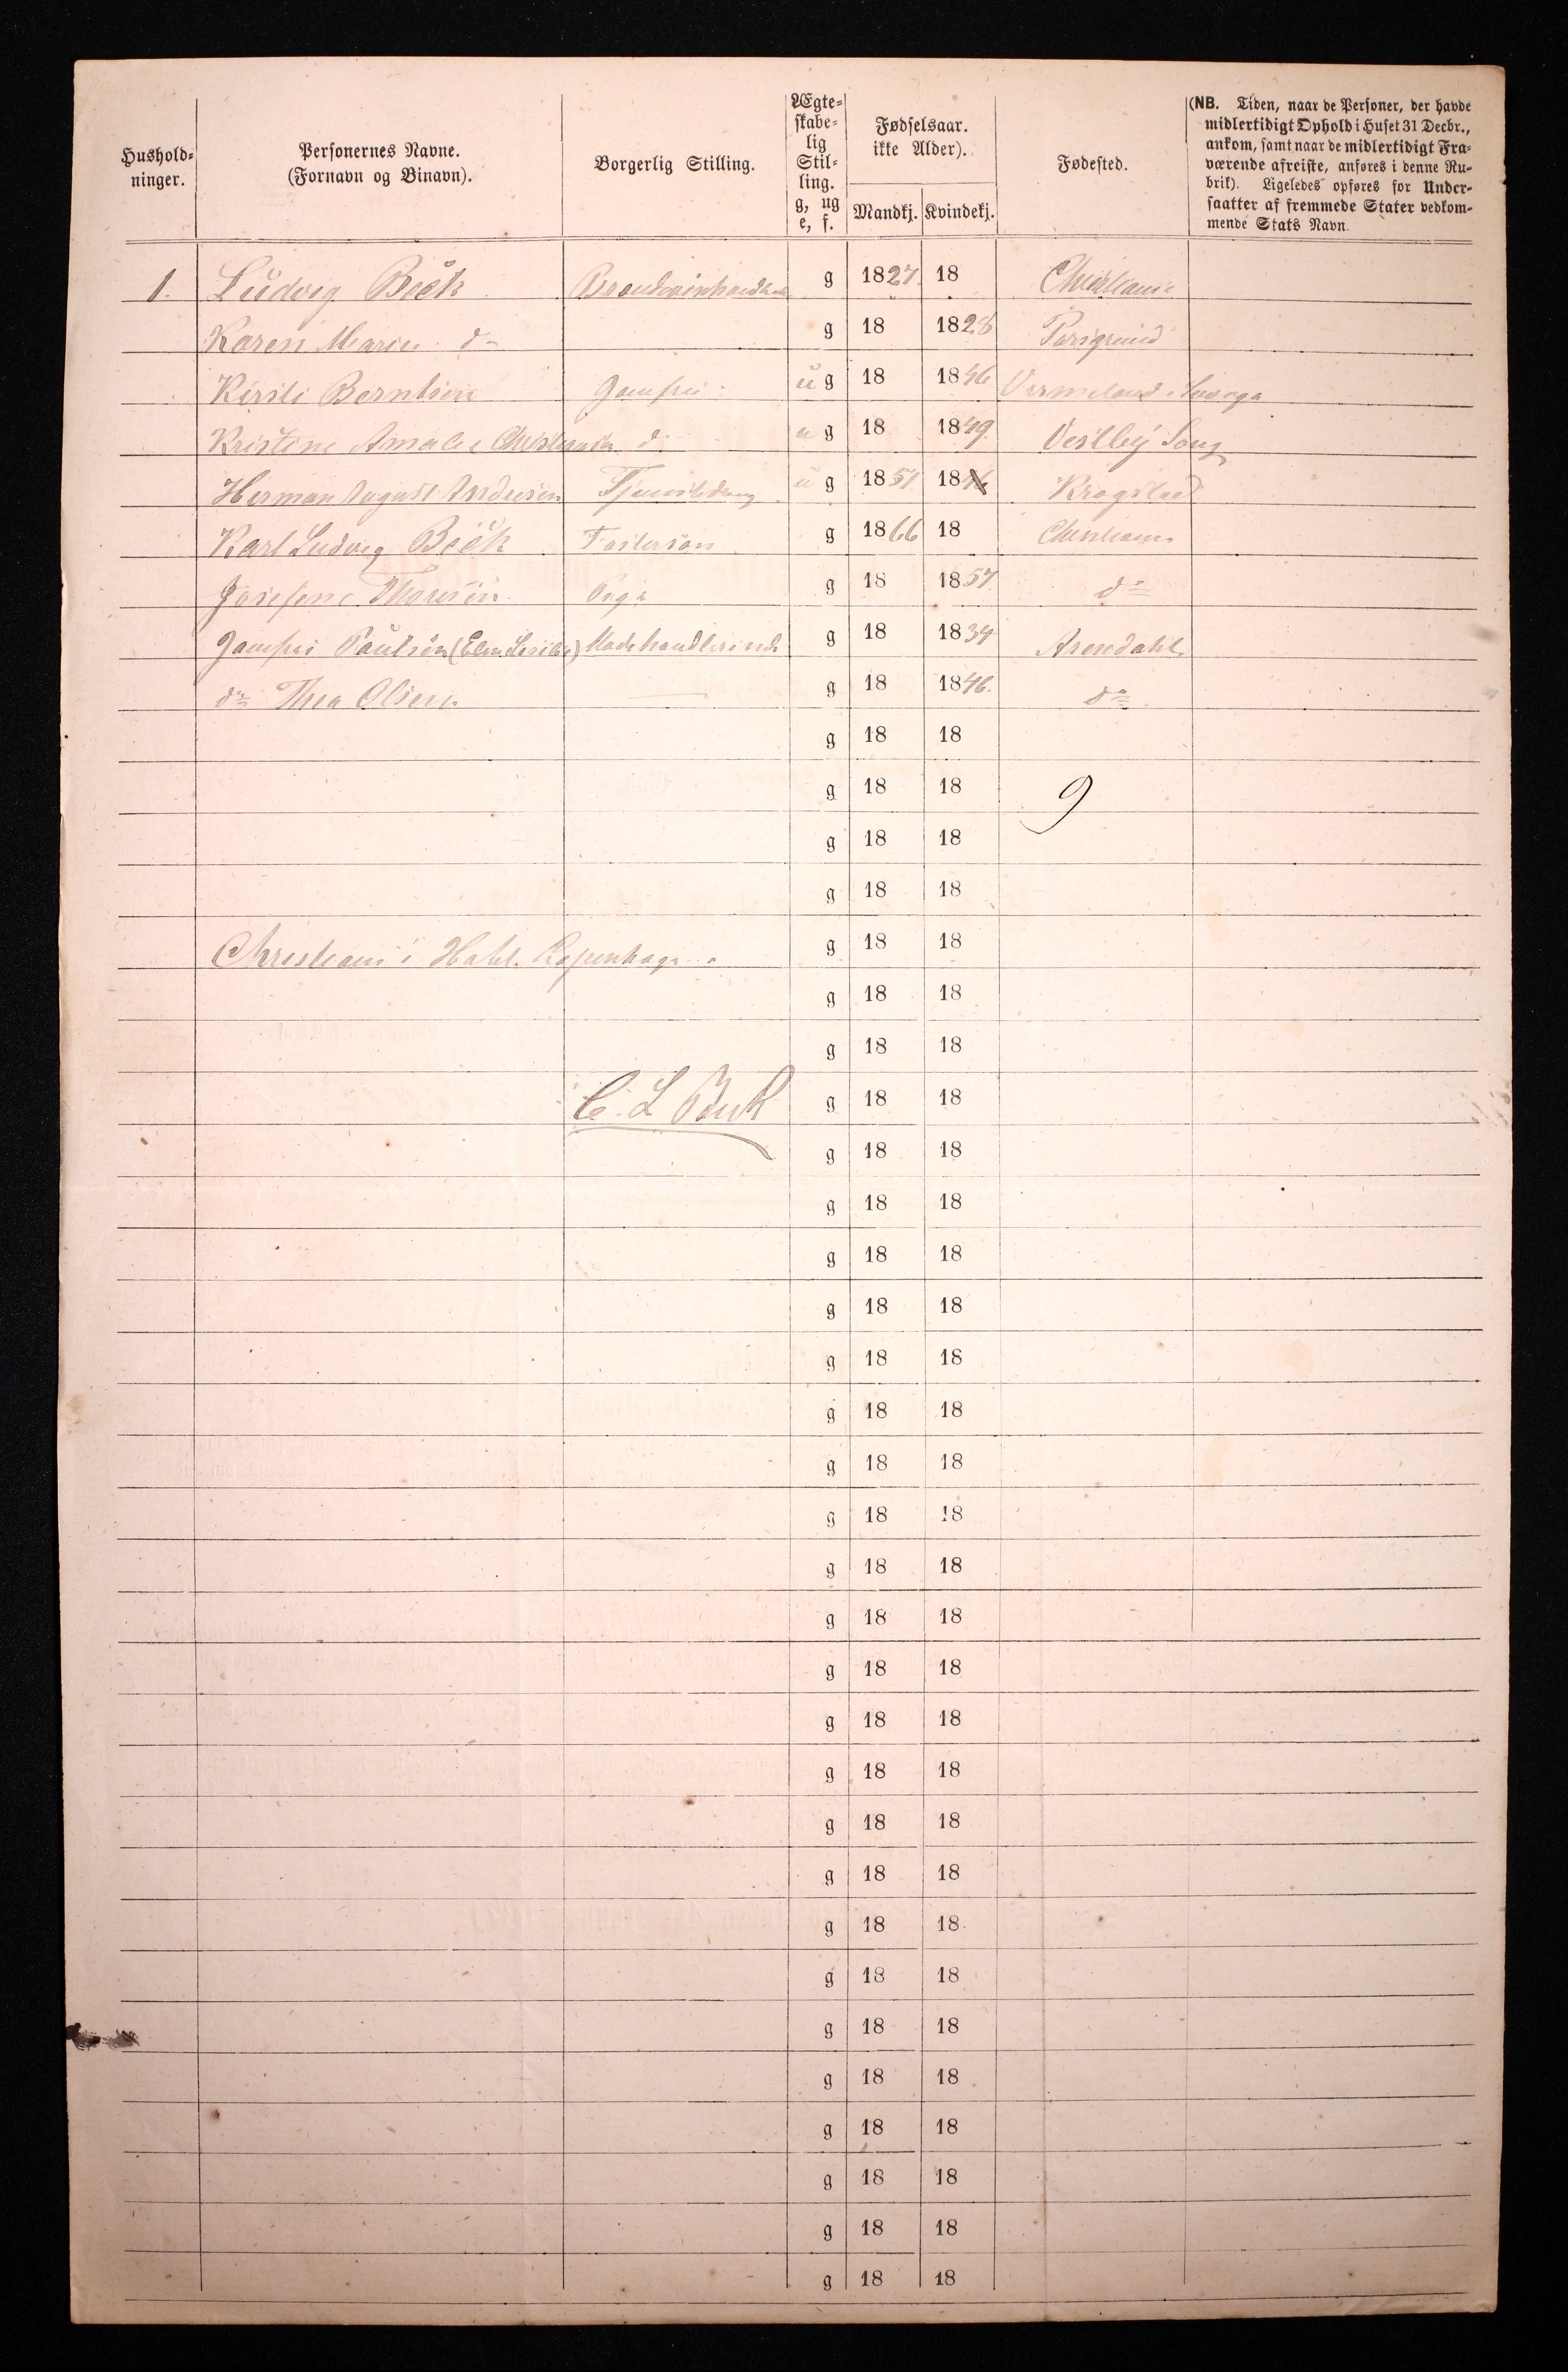 Hushold-
ninger.
Personernes Navne.
(Fornavn og Binavn).
Borgerlig Stilling.
Ægte-
skabe-
lig
Stil-
ling.
g, ug
e, f.
Fødselsaar.
ikke Alder).
Mandkj. Kvindekj.
Fødested.
(NB. Tiden, naar de Personer, der havde
midlertidigt Ophold i Huset 31 Decbr.,
ankom, samt naar de midlertidigt Fra-
værende afreiste, anføres i denne Ru-
brik). Ligeledes opføres for Under-
saatter af fremmede Stater vedkom-
mende Stats Navn.
1. Ludvig Beck g 1827 18 Christiania
Karen Marie do g 18 1828 Porsgrund
Kirsti Berntsen Jomfru ug 18 1846 Vermeland i Sverige
Kristine Amalie d ug 18 1849 Vestby Sogn
Herman August Andresen Tjenestedreng ug 1851 18 Kragstad
Karl Ludvig Beck Fostersøn g 1866 18 Christiania
Josefine Thoresen Pige g 18 1857 do
Jomfru Paulsen Modehandlerinde g 18 1834 Arendahl
do Thea Olsen g 18 1846. do
g 18 18
g 18 18 9
g 18 18
g 18 18
Christiania Hotel Kopenhagen g 18 18
g 18 18
g 18 18
C. L Beck g 18 18
g 18 18
g 18 18
g 18 18
g 18 18
g 18 18
g 18 18
g 18 18
g 18 18
g 18 18
g 18 18
g 18 18
g 18 18
g 18 18
g 18 18
g 18 18
g 18 18
g 18 18
g 18 18
g 18 18
g 18 18
g 18 18
g 18 18
g 18 18